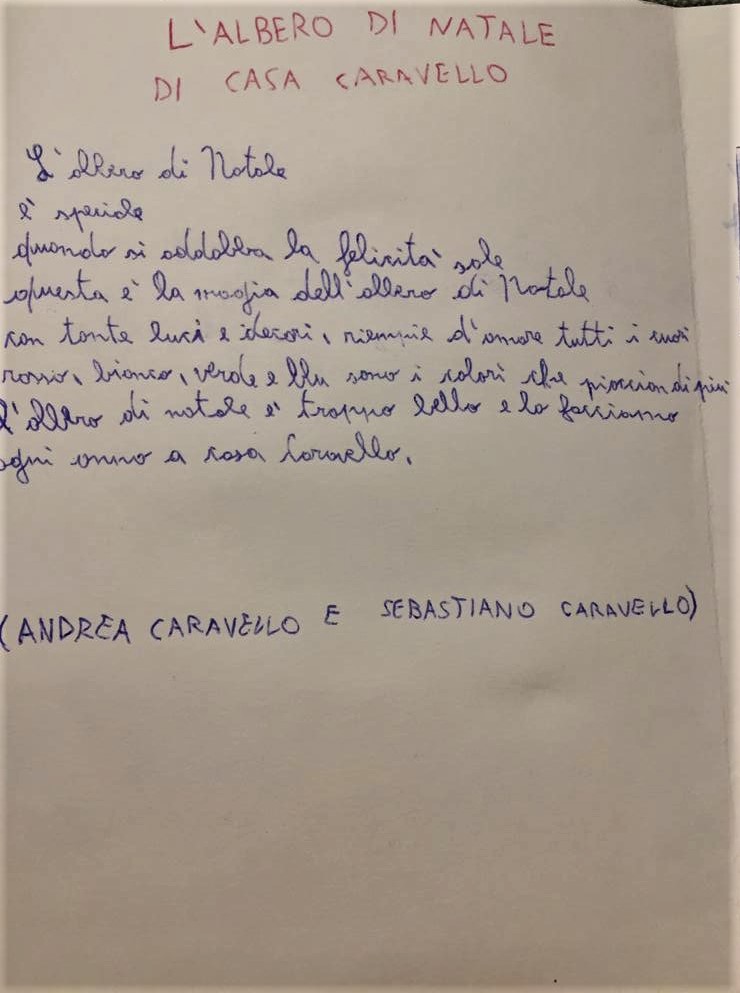 L'ALBERO DI NATALE
DI CASA CARAVELLO
L'albero di Natale
è speciale
quando si addobba la felicità sale
questa è la magia dell'albero di Natale
con tante luci e decori, riempie d'amore tutti i cuori
rosso, bianco, verde e blu sono i colori che piaccion di più
l'albero di natale è troppo bello e lo facciamo
ogni anno a casa Caravello.
(ANDREA CARAVELLO E SEBASTIANO CARAVELLO)